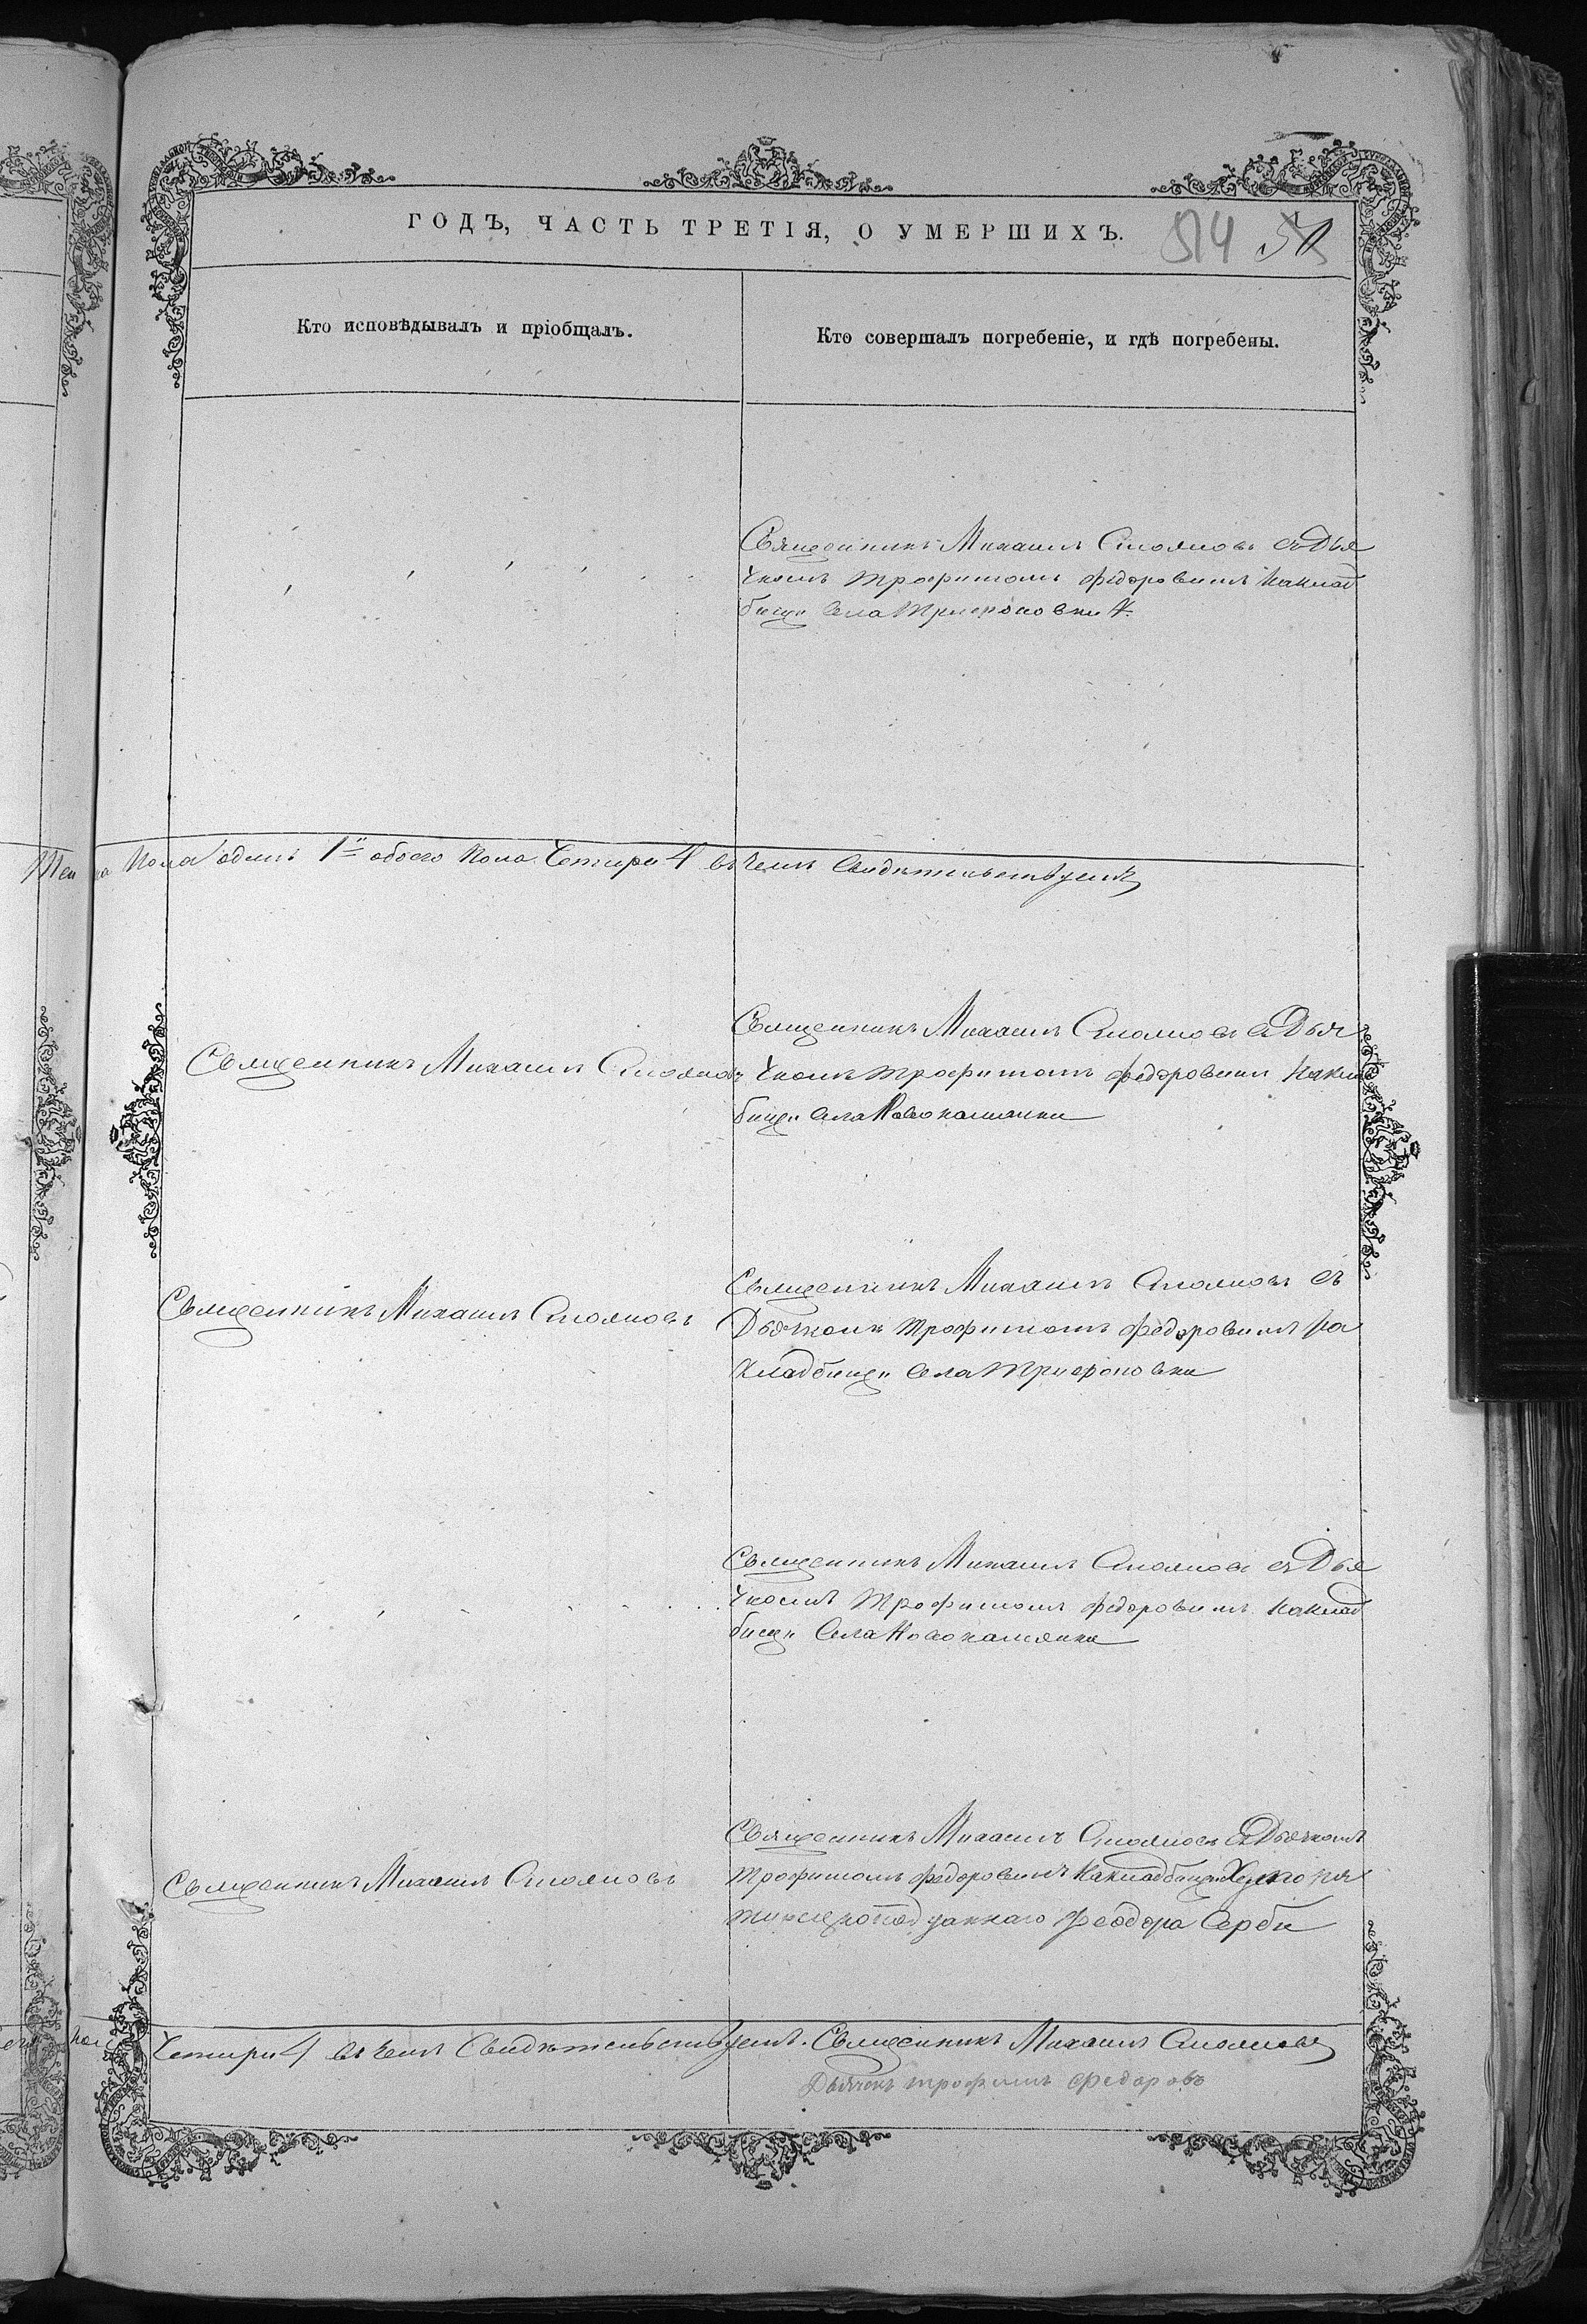 ГОДЪ, ЧАСТЬ ТРЕТІЯ, О УМЕРШИХЪ.
514 50
Кто исповѣдывалъ и пріобщалъ.
Кто совершалъ погребеніе, и гдѣ погребены.
Священникъ Михаилъ Стояновъ съ Дья
чкомъ Трофимомъ Федоровимъ на клад
бищи села Трифоновки
Пола одинъ 1 обоего пола Четири 4 въ чемъ свидѣтельствуемъ
Священникъ Михаилъ Стояновъ
Священникъ Михаилъ Стояновъ съ Дья
чкомъ Трофимомъ Федоровимъ на клад
бищи села Новокаменки
Священникъ Михаилъ Стояновъ
Священникъ Михаилъ Стояновъ съ
Дьячкомъ Трофимомъ Федоровимъ на
кладбищи села Трифоновки
Священникъ Михаилъ Стояновъ съ Дья
чкомъ Трофимомъ Федоровимъ на клад
бищи села Новокаменки
Священникъ Михаилъ Стояновъ
Священникъ Михаилъ Стояновъ съ Дьячкомъ
Трофимомъ Федоровимъ на кладбищи
Феодора Серби
Четири 4 въ чемъ свидѣтельствуемъ. Священникъ Михаилъ Стояновъ
Дьячекъ Трофимъ Федоровъ